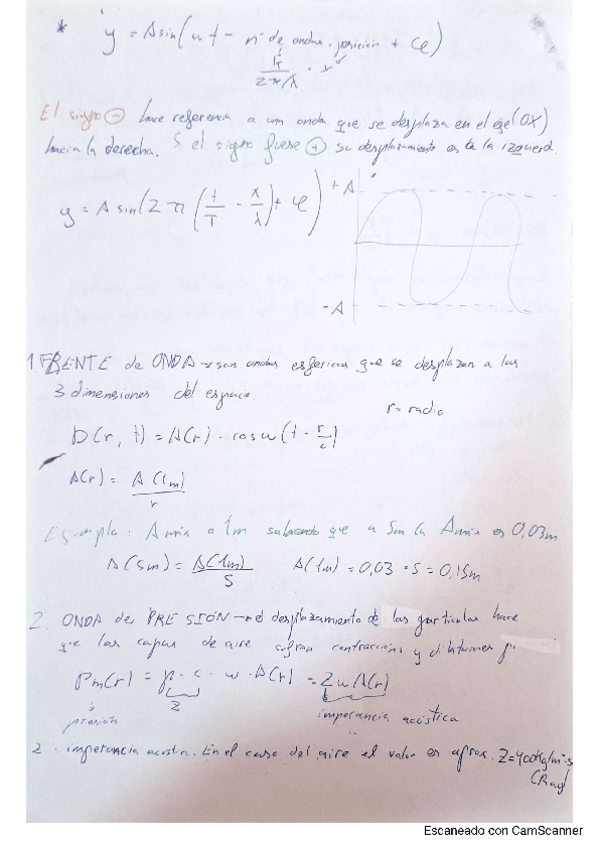 * y = A sin(wt - nº de ondas . posición + φ)
k
2π/λ . x
El signo ⊖ hace referencia a una onda que se desplaza en el eje (OX)
hacia la derecha. Si el signo fuese ⊕ su desplazamiento es la izquierd.
y = A sin(2π(t/T - x/λ) + φ)
+A
-A
1. FRENTE de ONDA → son ondas esféricas que se desplazan a las
3 dimensiones del espacio.
r = radio
D(r, t) = A(r) · cos w(t - r/c)
A(r) = A(1m)/r
Ejemplo: A máx a 1m sabiendo que a 5m la Amáx es 0,03m
A(5m) = A(1m)/5 A(1m) = 0,03 · 5 = 0,15m
2. ONDA de PRESIÓN → el desplazamiento de las partículas hace
que las capas de aire sufran contracciones y
Pm(r) = ρ · c · w · A(r) = Z w A(r)
Z
presión impetancia acústica
Z: impetancia acustica. En el caso del aire el valor es aprox. Z=400Kg/m²·s
(Rayl
Escaneado con CamScanner